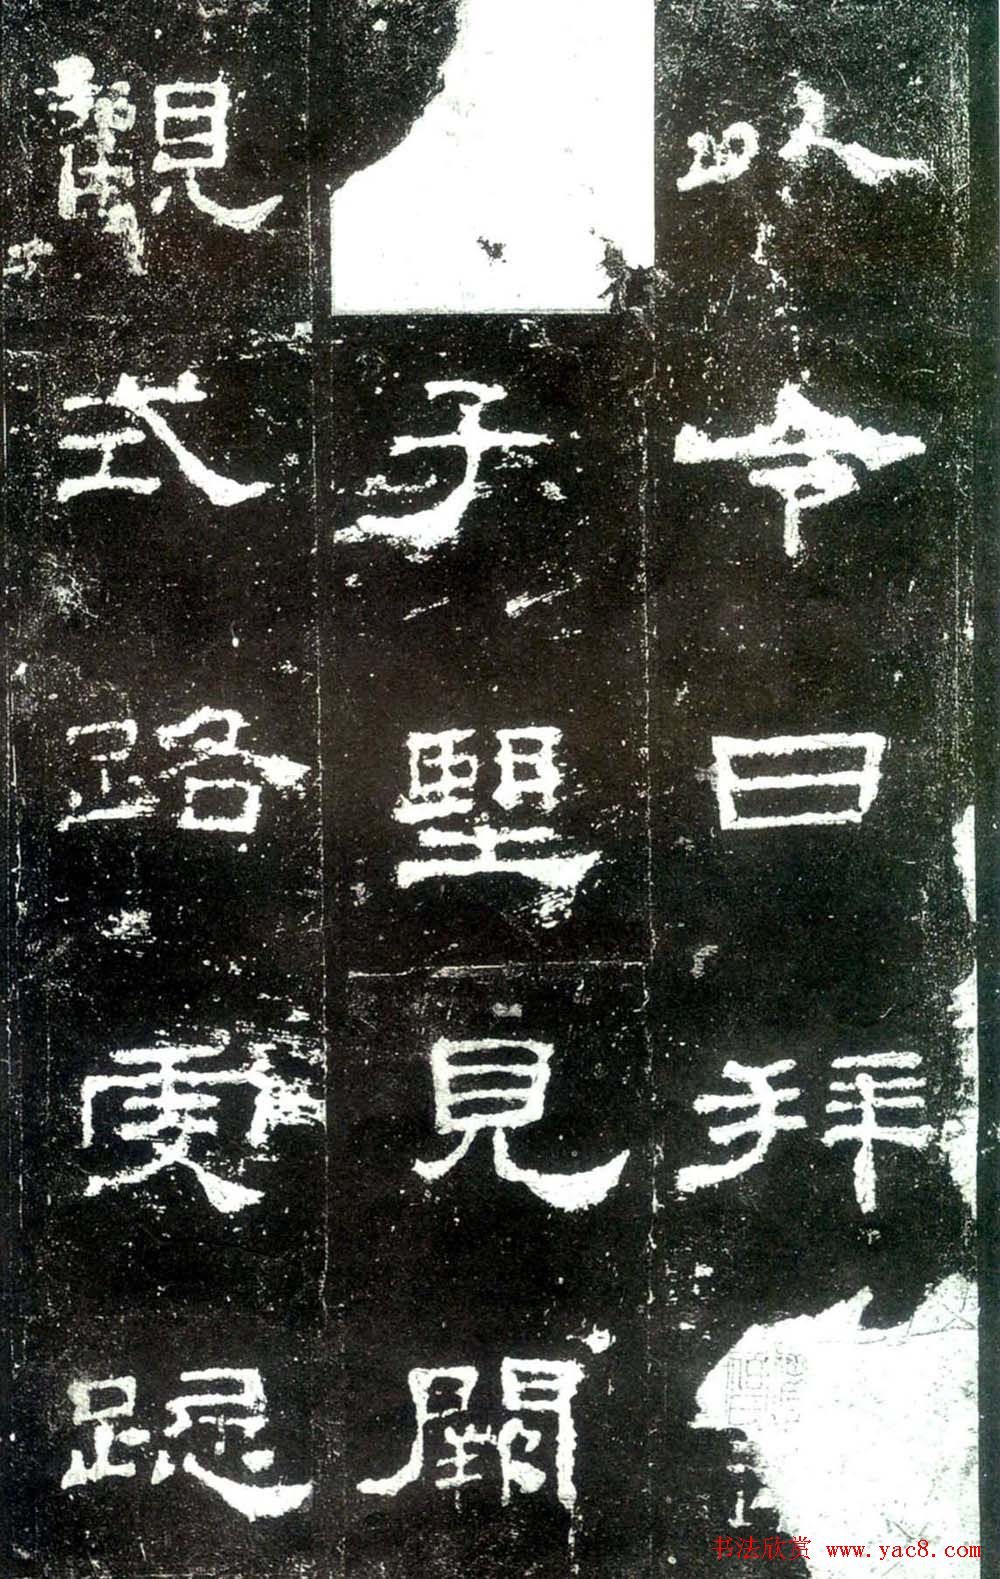 以令日拜
子望見闕
觀式路虔跽
书法欣赏 www.yac8.com